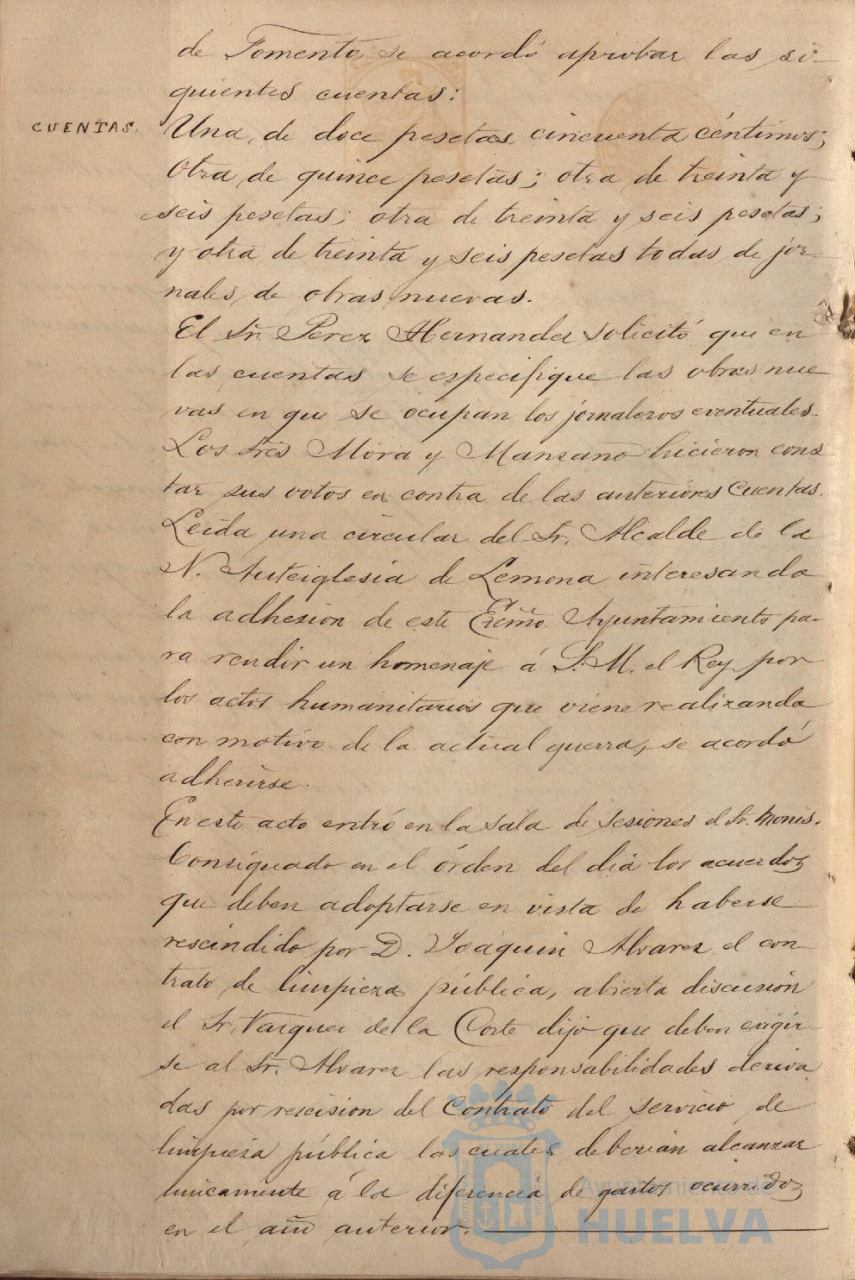 de Fomento se acordó aprobar las si-
guientes cuentas:
CUENTAS.
Una, de doce pesetas cincuenta céntimos;
otra de quince pesetas; otra de treinta y
seis pesetas; otra de treinta y seis pesetas;
y otra de treinta y seis pesetas todas de jor-
nales, de obras nuevas.
El Sr. Perez Hernandez solicitó que en
las cuentas se especifique las obras nue
vas en que se ocupan los jornaleros eventuales.
Los Sres Mora y Manzano hicieron cons
tar sus votos en contra de las anteriores cuentas.
Leida una circular del Sr. Alcalde de la
N. Anteiglesia de Lemona interesando
la adhesion de este Excmo. Ayuntamiento pa-
ra rendir un homenaje á S.M. el Rey por
los actos humanitarios que viene realizando
con motivo de la actual guerra, se acordó
adherirse.
En este acto entró en la sala de sesiones el Sr. Monis.
Consignado en el órden del dia los acuerdos
que deben adoptarse en vista de haberse
rescindido por D. Joaquin Alvarez el con-
trato de limpieza pública, abierta discusión
el Sr. Vazquez de la Corte dijo que deben exigir
se al Sr. Alvarez las responsabilidades deriva
das por rescision del contrato del servicio de
limpieza pública las cuales deberian alcanzar
unicamente á la diferencia de gastos ocurridos
en el año anterior.
Ayuntamiento de
HUELVA